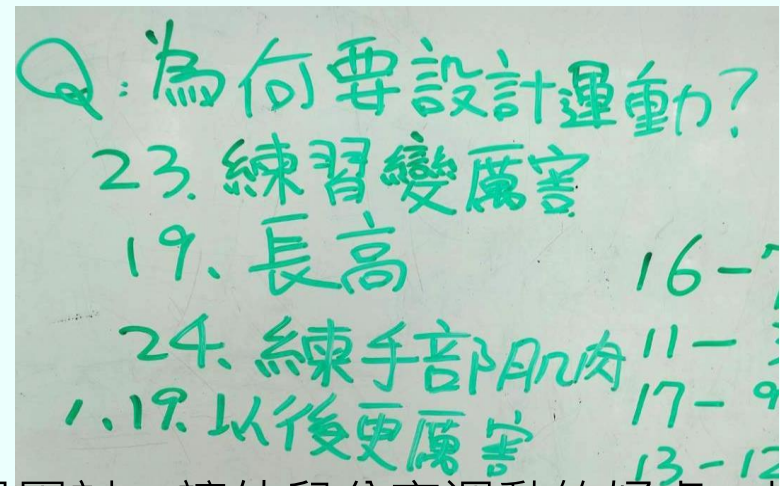 Q:為何要設計運動?
23.練習變厲害
19、長高
24、練手部肌肉
1、19.以後更厲害
16-7
11-
17-9
13-12